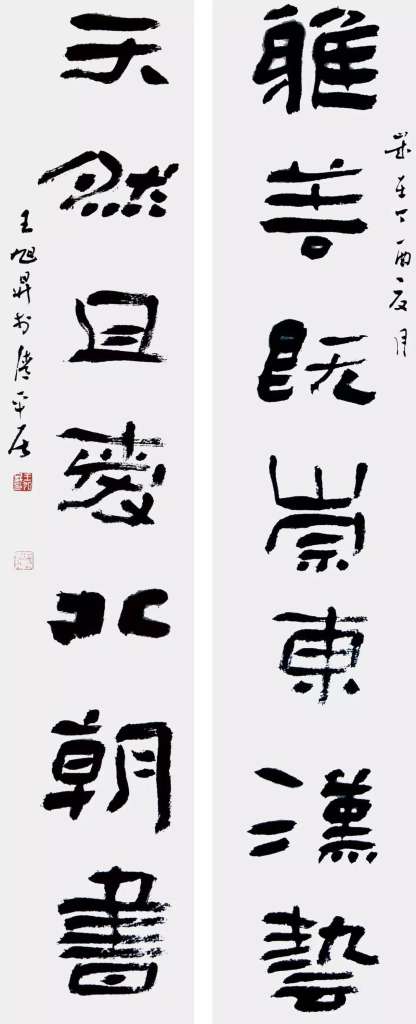 歲在丁酉夏月
雅善既崇東漢藝
天然且愛北朝書
王旭昇於平居